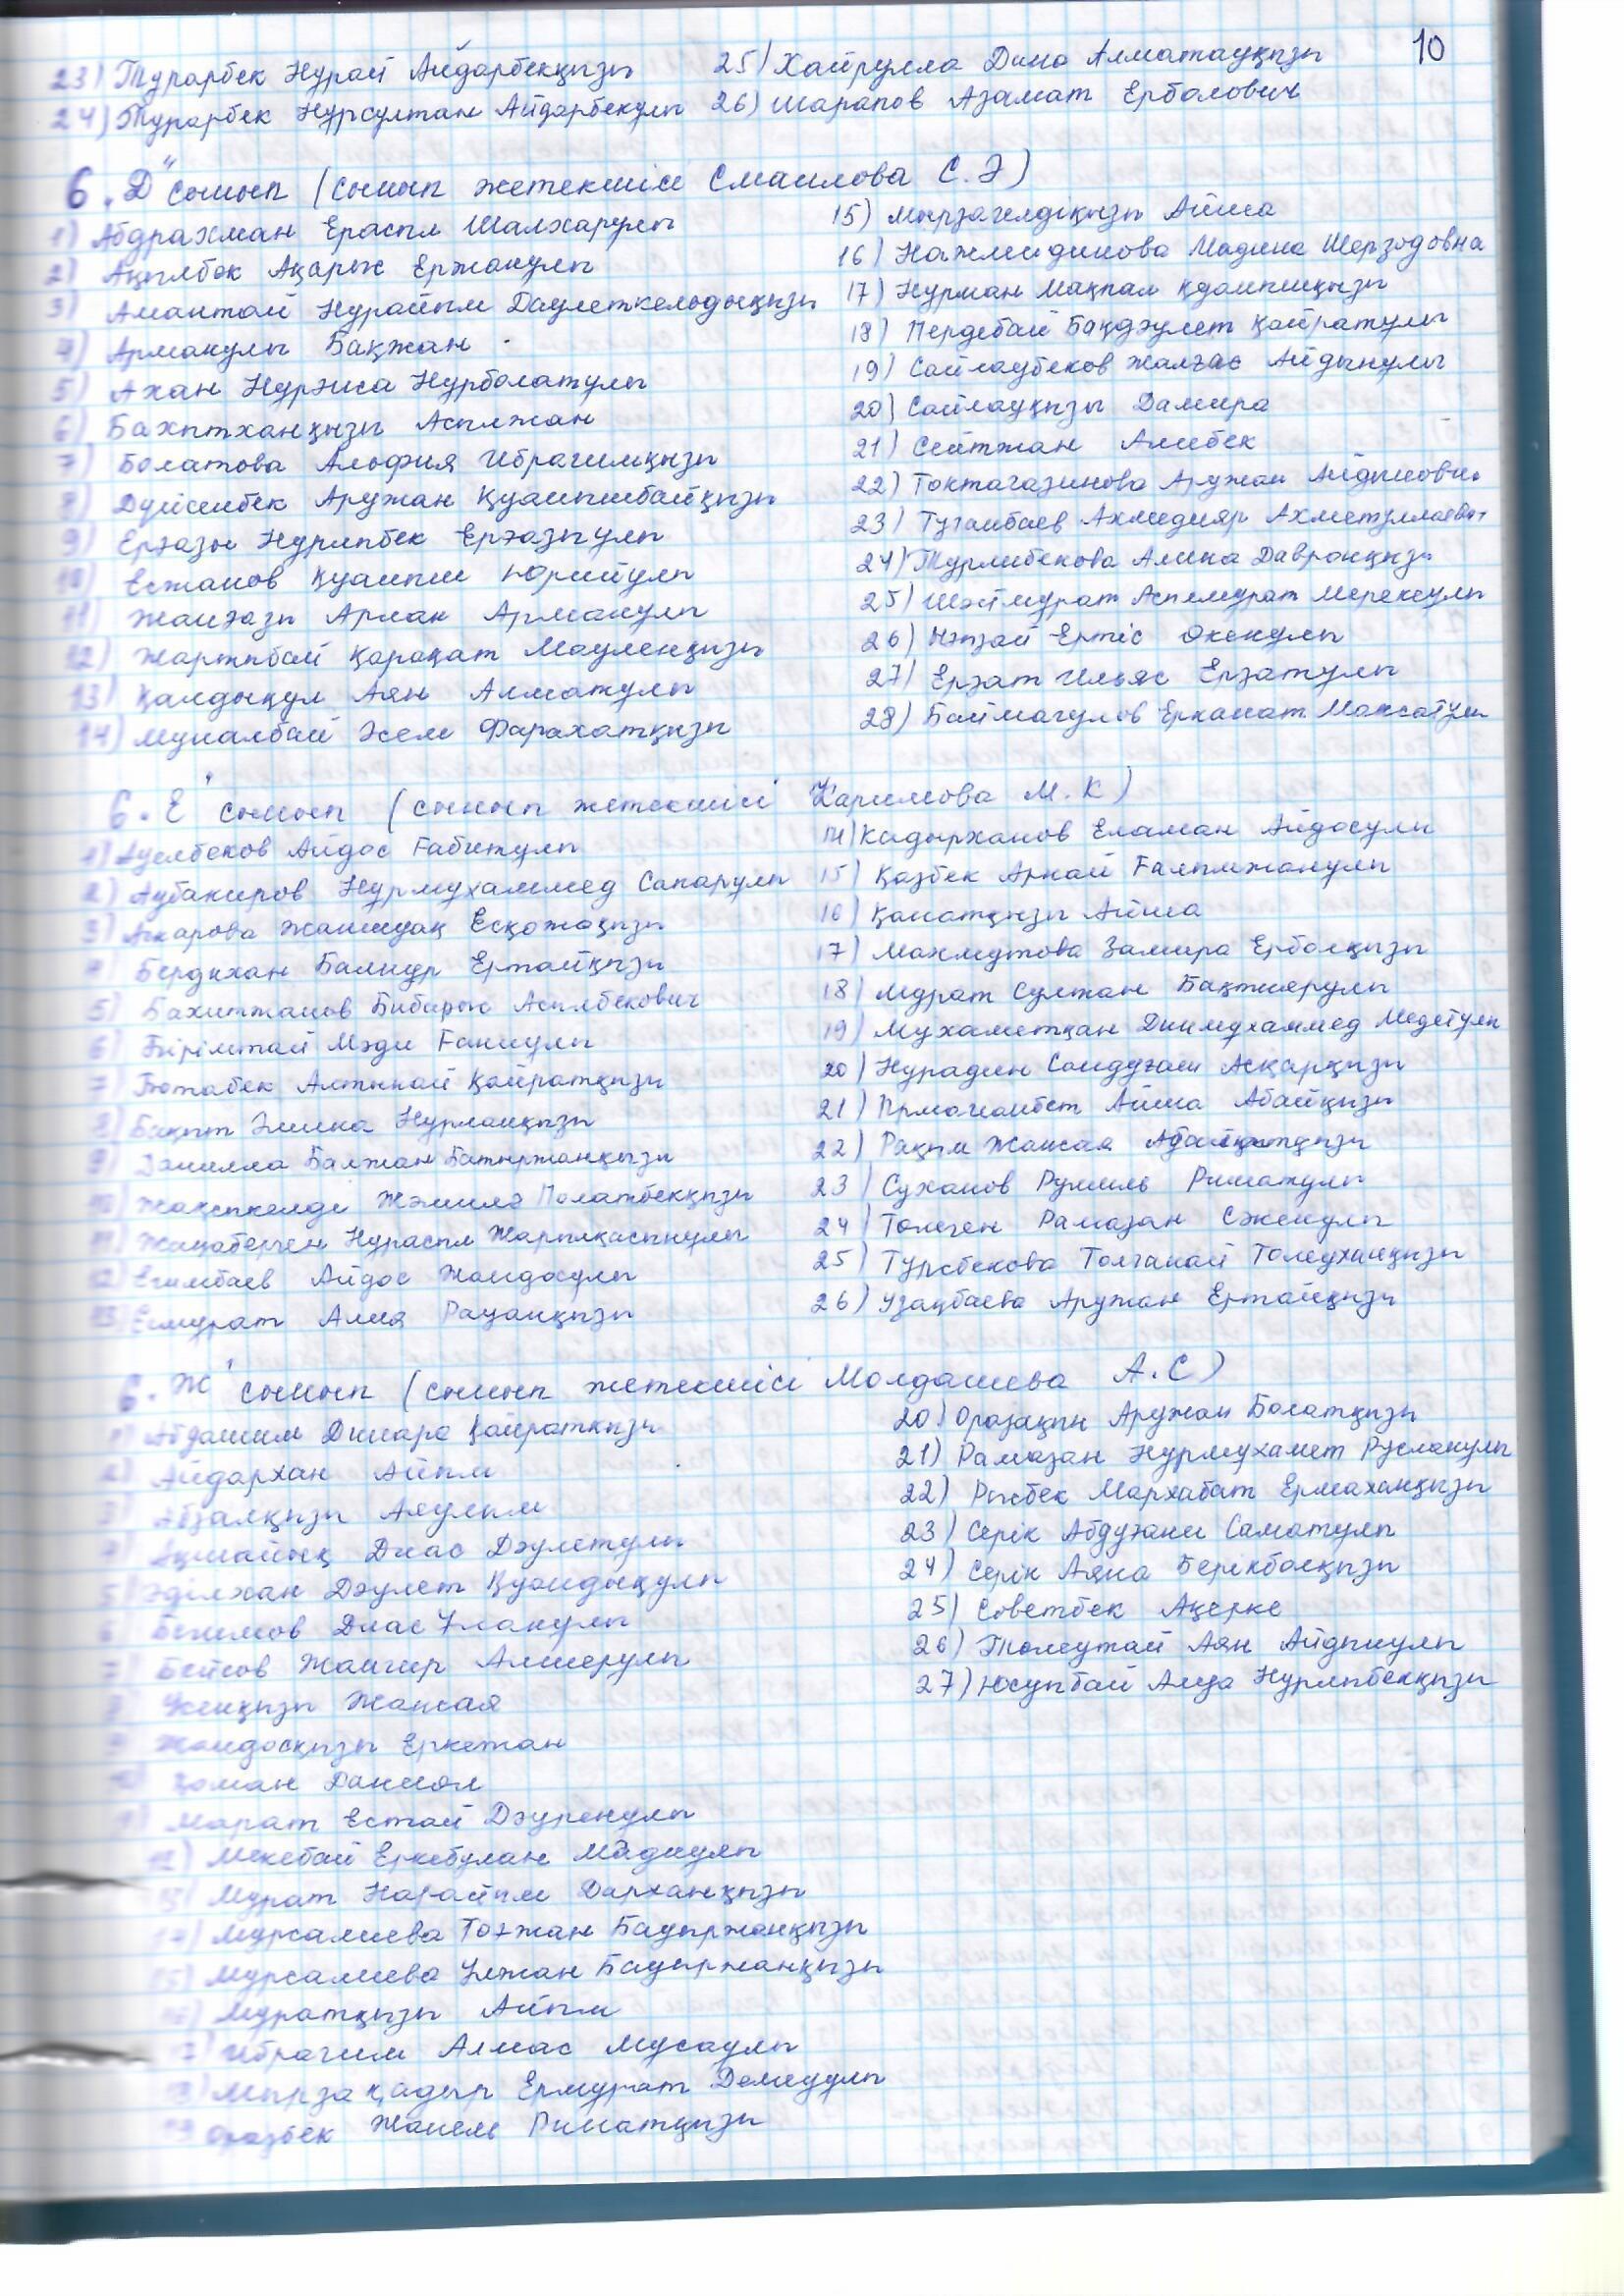 10
23) Тұрарбек Нұрай Айдарбекқызы
24) Тұрарбек Нұрсұлтан Айдарбекұлы
25) Хайрулла Дина Алматауқызы
26) Шарапов Азамат Ерболович
6 "Д" сынып (сынып жетекшісі Смаилова С.Ә)
1) Абдрахман Ерасыл Шалхарұлы
2) Ақылбек Ақарыс Ержанұлы
3) Амантай Нұрайым Даулеткелдықызы
4) Арманұлы Бақжан
5) Ахан Нұрэиса Нурболатұлы
6) Бахытханқызы Асылжан
7) Болатова Альфия Ибрагимқызы
8) Дүйсенбек Аружан Қуанышбайқызы
9) Ерғазы Нұрлыбек Ерғазыұлы
10) Есжанов Қуаныш Юрийұлы
11) Жанғазы Арлан Арманұлы
12) Жартыбай Қарақат Мәуленқызы
13) Қалдықұл Аян Алматұлы
14) Мұналбай Әсем Фарахатқызы
15) Мырзагелдіқызы Айша
16) Нажмидинова Мадина Шерзодовна
17) Нұрман Мақпал Қуанышқызы
18) Пердебай Бақдәулет Қайратұлы
19) Сайлаубеков Жалғас Айдынұлы
20) Сайлауқызы Дамира
21) Сейтжан Алибек
22) Токтагазинова Аружан
23) Туганбаев Ахмедияр
24) Турлибекова Алина Давронқызы
25) Шәймұрат Асылмұрат Мерекеұлы
26) Ертіс Өкенұлы
27) Ерзат Ильяс Ерзатұлы
28) Баймагулов Ерканат Мақсатұлы
6 "Е" сынып (сынып жетекшісі Каримова М.К)
1) Ауелбеков Айдос Ғабитұлы
2) Аубакиров Нұрмұхаммед Сапарұлы
3) Асқарова Жанындақ Есқожақызы
4) Бердихан Балнұр Ертайқызы
5) Бахитжанов Бибарыс Асылбекович
6) Бірімтай Мәди Ғаниұлы
7) Ботабек Алтынай Қайратқызы
8) Бақыт Элина Нұрланқызы
9) Данилла Балжан Батыржанқызы
10) Жақсыкелді Жәмилә Полатбекқызы
11) Жаңаберген Нұрасыл Жарылқасынұлы
12) Егимбаев Айдос Жандосұлы
13) Есмұрат Алия Рауанқызы
14) Кадырханов Еламан Айдосұлы
15) Қазбек Арнай Ғалымжанұлы
16) Қанатқызы Айша
17) Махмутова Замира Ерболқызы
18) Мұрат Сұлтан Бақтиярұлы
19) Мұхаметқан Динмұхаммед Медетұлы
20) Нұрадин Сандуғаш Асқарқызы
21) Прмағанбет Айша Абайқызы
22) Рақым Жансая
23) Суханов Румиль Ринатұлы
24) Төлеген Рамазан Сәкенұлы
25) Тұрсбекова Толғанай Толеуханқызы
26) Узақбаева Аружан Ертайқызы
6 "Ж" сынып (сынып жетекшісі Молдашева А.С)
1) Абдашим Динара Қайратқызы
2) Айдархан Айым
3) Абзалқызы Аяулым
4) Ақшайық Диас Дәулетұлы
5) Әділхан Дәулет Қуандықұлы
6) Бегимов Диас Ұланұлы
7) Бейсов Жангир Алшерұлы
8) Жансая
9) Жандосқызы Еркежан
10) Қоман Даниял
11) Марат Естай Дәуренұлы
12) Мекебай Еркебұлан Мәдиұлы
13) Мұрат Нарайым Дарханқызы
14) Мурсалиева Тоғжан Бауыржанқызы
15) Мурсалиева Ұлжан Бауыржанқызы
16) Мұратқызы Айым
17) Ибрагим Алмас Мұсаұлы
18) Мырзақадыр Ермұрат Демеуұлы
19) Оразбек Жанель Ринатқызы
20) Оразақын Аружан Болатқызы
21) Рамазан Нұрмұхамет Русланұлы
22) Рысбек Мархабат Ермаханқызы
23) Серік Абдуғани Саматұлы
24) Серік Аяна Берікболқызы
25) Советбек Ақерке
26) Толеутай Аян Айдынұлы
27) Юсупбай Аида Нұрлыбекқызы